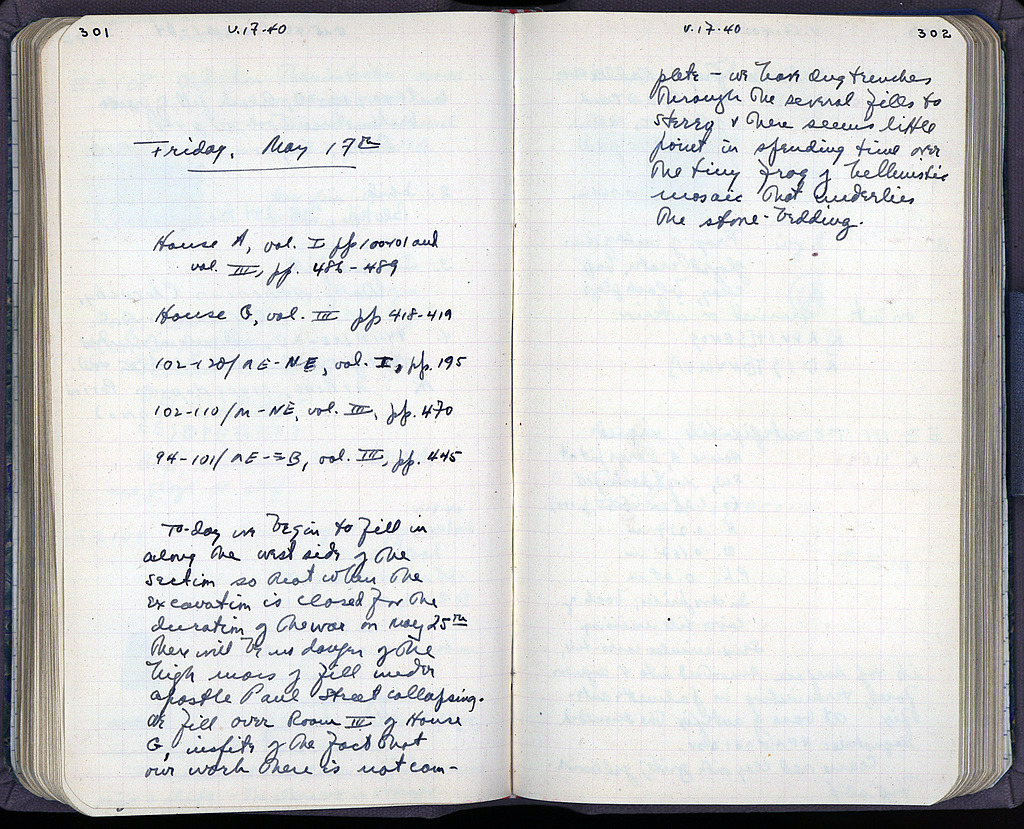 301
V.17.40
Friday, May 17th
House A, vol. I pp 100-101 and
vol. III, pp. 486-489
House G, vol. III pp 418-419
102-120/ΛE-NE, vol. I, pp. 195
102-110/M-NE, vol. III, pp. 470
94-101/ΛE-ΞB, vol. III, pp. 445
To-day we begin to fill in
along the west side of the
section so that when the
excavation is closed for the
duration of the war on May 25th
there will be no danger of the
high mass of fill under
Apostle Paul Street collapsing.
We fill over Room III of House
G, inspite of the fact that
our work there is not com-
V.17.40
302
plete - we have dug trenches
through the several fills to
stereo & there seems little
point in spending time over
the tiny frag of hellenistic
mosaic that underlies
the stone-bedding.